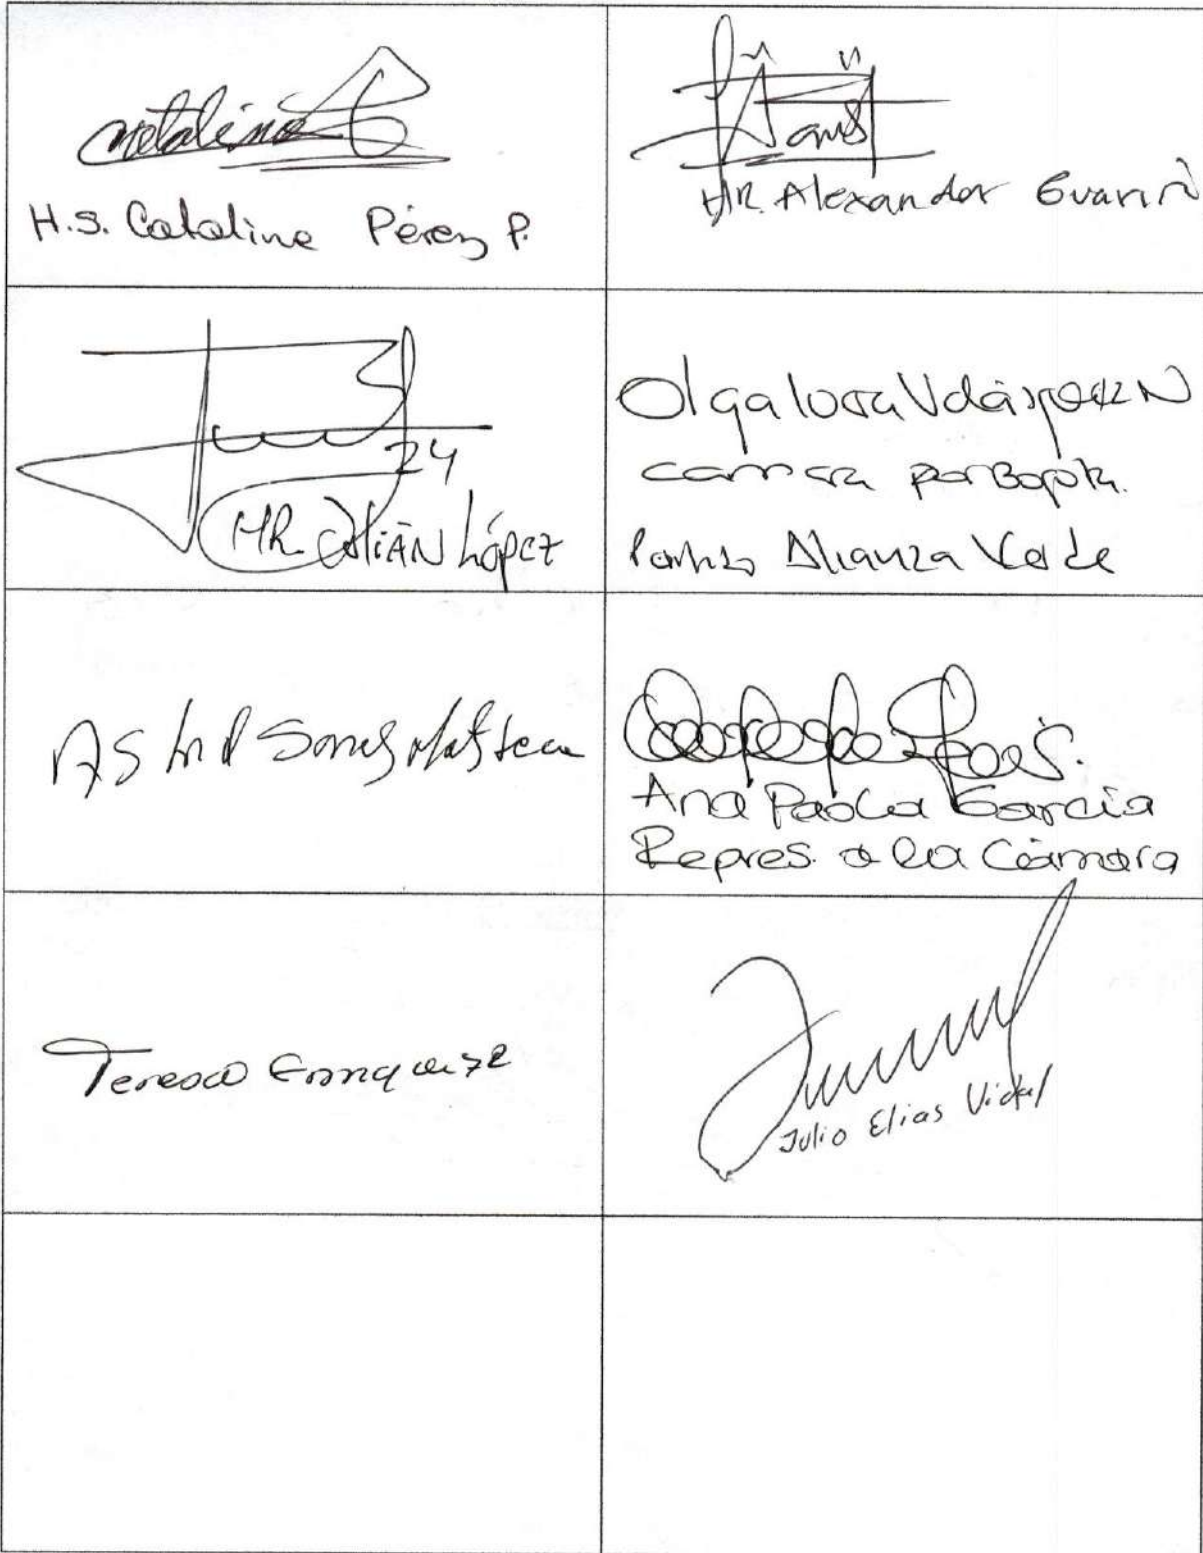 Catalina
H.S. Catalina Pérez P.
HR. Alexander Guarín
24
HR Julián López
Olga Lucía Velásquez N
camara por Bogotá.
Partido Alianza Verde
Astrid Sánchez Montes de Oca
Ana Paola García
Repres. a la Cámara
Teresa Enríquez
Julio Elias Vidal